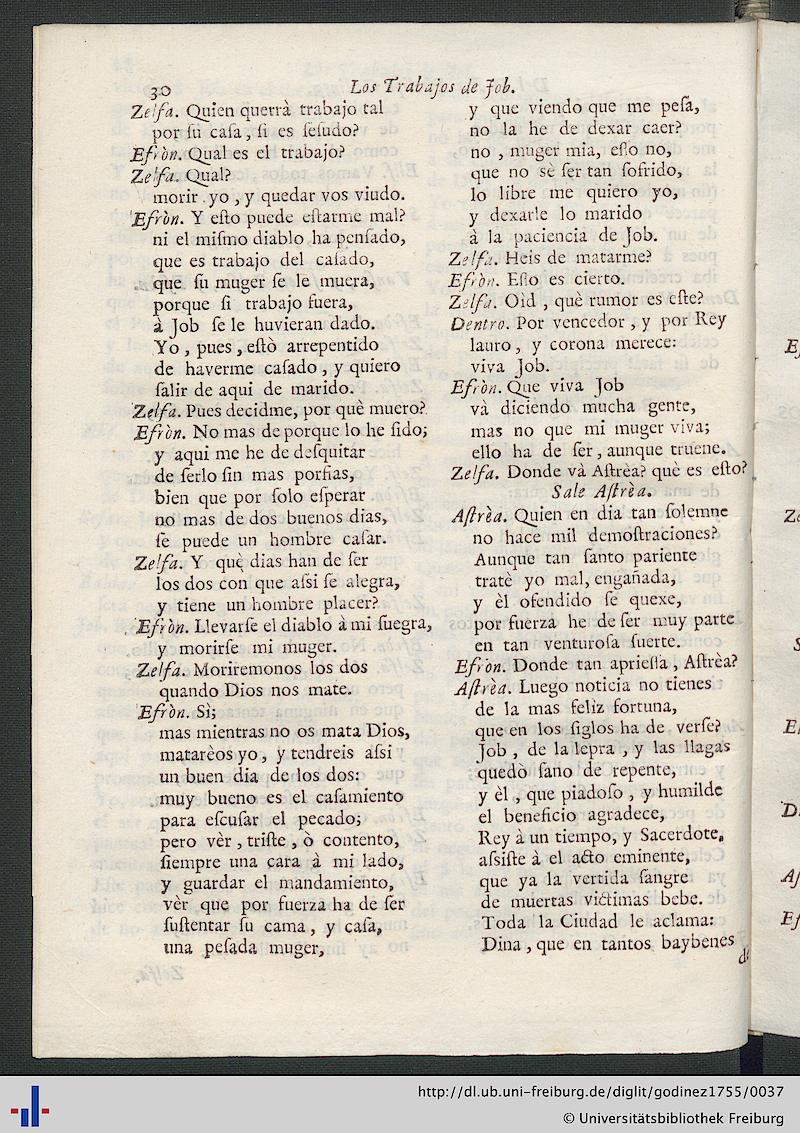 30
Los Trabajos de Job.
Zelfa. Quien querrà trabajo tal
por ſu caſa, ſi es ſeſudo?
Efròn. Qual es el trabajo?
Zelfa. Qual?
morir yo, y quedar vos viudo.
Efròn. Y eſto puede eſtarme mal?
ni el miſmo diablo ha penſado,
que es trabajo del caſado,
que ſu muger ſe le muera,
porque ſi trabajo fuera,
à Job ſe le huvieran dado.
Yo, pues, eſtò arrepentido
de haverme caſado, y quiero
ſalir de aqui de marido.
Zelfa. Pues decidme, por què muero?
Efròn. No mas de porque lo he ſido;
y aqui me he de deſquitar
de ſerlo ſin mas porfias,
bien que por ſolo eſperar
no mas de dos buenos dias,
ſe puede un hombre caſar.
Zelfa. Y què dias han de ſer
los dos con que aſsi ſe alegra,
y tiene un hombre placer?
Efròn. Llevarſe el diablo à mi ſuegra,
y morirſe mi muger.
Zelfa. Moriremonos los dos
quando Dios nos mate.
Efròn. Sì;
mas mientras no os mata Dios,
matarèos yo, y tendreis aſsi
un buen dia de los dos:
muy bueno es el caſamiento
para eſcuſar el pecado;
pero vèr, triſte, ò contento,
ſiempre una cara à mi lado,
y guardar el mandamiento,
vèr que por fuerza ha de ſer
ſuſtentar ſu cama, y caſa,
una peſada muger,
y que viendo que me peſa,
no la he de dexar caer?
no, muger mia, eſſo no,
que no sè ſer tan ſofrido,
lo libre me quiero yo,
y dexarle lo marido
à la paciencia de Job.
Zelfa. Heis de matarme?
Efròn. Eſſo es cierto.
Zelfa. Oìd, què rumor es eſte?
Dentro. Por vencedor, y por Rey
lauro, y corona merece:
viva Job.
Efròn. Que viva Job
và diciendo mucha gente,
mas no que mi muger viva;
ello ha de ſer, aunque truene.
Zelfa. Donde và Aſtrèa? què es eſto?
Sale Aſtrèa.
Aſtrèa. Quien en dia tan ſolemne
no hace mil demoſtraciones?
Aunque tan ſanto pariente
tratè yo mal, engañada,
y èl ofendido ſe quexe,
por fuerza he de ſer muy parte
en tan venturoſa ſuerte.
Efròn. Donde tan aprieſſa, Aſtrèa?
Aſtrèa. Luego noticia no tienes
de la mas feliz fortuna,
que en los ſiglos ha de verſe?
Job, de la lepra, y las llagas
quedò ſano de repente,
y èl, que piadoſo, y humilde
el beneficio agradece,
Rey à un tiempo, y Sacerdote,
aſsiſte à el acto eminente,
que ya la vertida ſangre
de muertas victimas bebe.
Toda la Ciudad le aclama:
Dina, que en tantos baybenes
de
http://dl.ub.uni-freiburg.de/diglit/godinez1755/0037
© Universitätsbibliothek Freiburg